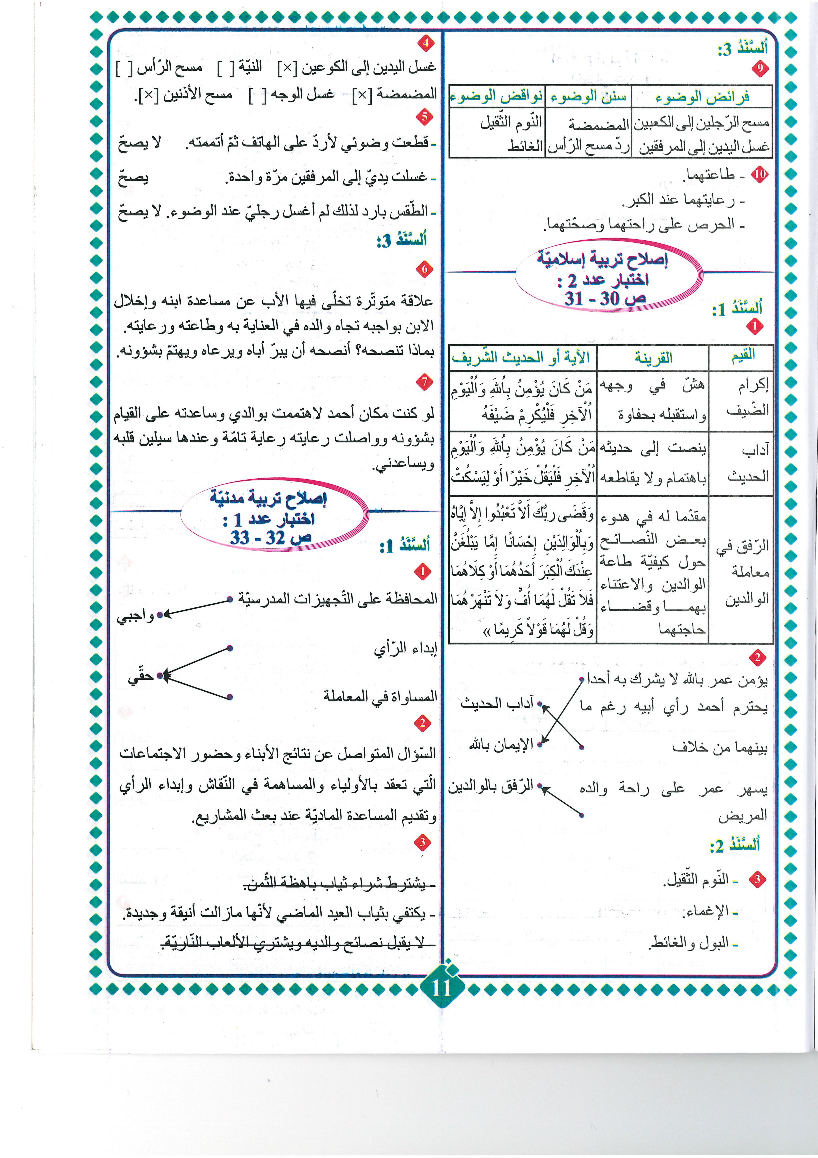 ألسَّنَدُ 3:
9
فرائض الوضوء | سنن الوضوء | نواقض الوضوء
مسح الرّجلين إلى الكعبين | المضمضة | النّوم الثّقيل
غسل اليدين إلى المرفقين | ردّ مسح الرّأس | الغائط
10 - طاعتهما.
- رعايتهما عند الكبر.
- الحرص على راحتهما وصحّتهما.
إصلاح تربية إسلاميّة
اختبار عدد 2 :
ص 30 - 31
ألسَّنَدُ 1:
1
القيم | القرينة | الآية أو الحديث الشّريف
إكرام | هشّ في وجهه | مَنْ كَانَ يُؤْمِنُ بِاللهِ وَالْيَوْمِ
الضّيف | واستقبله بحفاوة | الْآخِرِ فَلْيُكْرِمْ ضَيْفَهُ
آداب | ينصت إلى حديثه | مَنْ كَانَ يُؤْمِنُ بِاللهِ وَالْيَوْمِ
الحديث | باهتمام ولا يقاطعه | الْآخِرِ فَلْيَقُلْ خَيْرًا أَوْ لِيَسْكُتْ
الرّفق في | مقدّما له في هدوء | وَقَضَى رَبُّكَ أَلاَّ تَعْبُدُوا إِلاَّ إِيَّاهُ
معاملة | بعض النّصائح | وَبِالْوَالِدَيْنِ إِحْسَانًا إِمَّا يَبْلُغَنَّ
الوالدين | حول كيفيّة طاعة | عِنْدَكَ الْكِبَرَ أَحَدُهُمَا أَوْ كِلاَهُمَا
الوالدين والاعتناء | فَلاَ تَقُلْ لَهُمَا أُفٍّ وَلاَ تَنْهَرْهُمَا
بهما وقضاء | وَقُلْ لَهُمَا قَوْلاً كَرِيمًا »
حاجتهما
2
يؤمن عمر بالله لا يشرك به أحدا
يحترم أحمد رأي أبيه رغم ما
آداب الحديث
بينهما من خلاف
الإيمان بالله
يسهر عمر على راحة والده
الرّفق بالوالدين
المريض
ألسَّنَدُ 2:
3 - النّوم الثّقيل.
- الإغماء.
- البول والغائط.
4
غسل اليدين إلى الكوعين [×] النيّة [ ] مسح الرّأس [ ]
المضمضة [×] غسل الوجه [ ] مسح الأذنين [×].
5
- قطعت وضوئي لأردّ على الهاتف ثمّ أتممته. لا يصحّ
- غسلت يديّ إلى المرفقين مرّة واحدة. يصحّ
- الطّقس بارد لذلك لم أغسل رجليّ عند الوضوء. لا يصحّ
ألسَّنَدُ 3:
6
علاقة متوتّرة تخلّى فيها الأب عن مساعدة ابنه وإخلال
الابن بواجبه تجاه والده في العناية به وطاعته ورعايته.
بماذا تنصحه؟ أنصحه أن يبرّ أباه ويرعاه ويهتمّ بشؤونه.
7
لو كنت مكان أحمد لاهتممت بوالدي وساعدته على القيام
بشؤونه وواصلت رعايته رعاية تامّة وعندها سيلين قلبه
ويساعدني.
إصلاح تربية مدنيّة
اختبار عدد 1 :
ص 32 - 33
ألسَّنَدُ 1:
1
المحافظة على التّجهيزات المدرسيّة
واجبي
إبداء الرّأي
حقّي
المساواة في المعاملة
2
السّؤال المتواصل عن نتائج الأبناء وحضور الاجتماعات
الّتي تعقد بالأولياء والمساهمة في النّقاش وإبداء الرأي
وتقديم المساعدة الماديّة عند بعث المشاريع.
3
- يشترط شراء ثياب باهظة الثّمن.
- يكتفي بثياب العيد الماضي لأنّها مازالت أنيقة وجديدة.
- لا يقبل نصائح والديه ويشتري الألعاب النّاريّة.
11